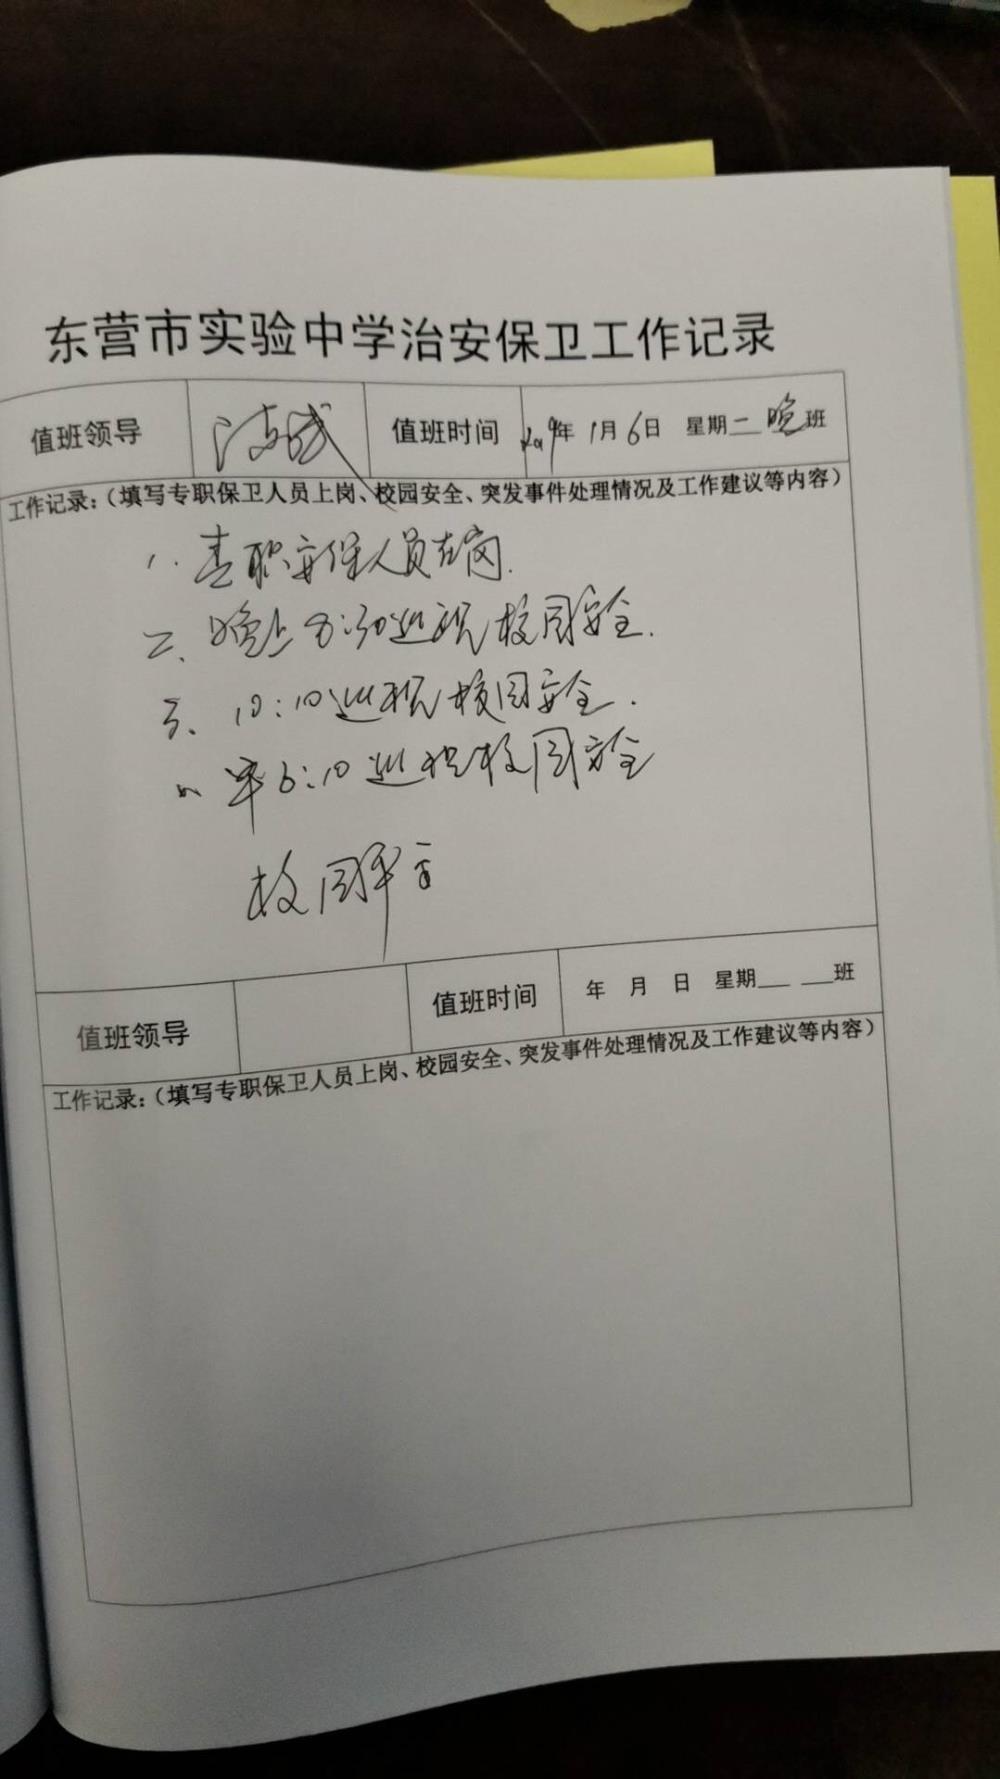 东营市实验中学治安保卫工作记录
值班领导 值班时间 年1月6日 星期二 晚班
工作记录:(填写专职保卫人员上岗、校园安全、突发事件处理情况及工作建议等内容)
1. 专职安保人员在岗.
二、晚上8:30巡视校园安全.
三、10:10巡视校园安全.
早6:10巡视校园安全
校园平安
值班领导 值班时间 年 月 日 星期__ __班
工作记录:(填写专职保卫人员上岗、校园安全、突发事件处理情况及工作建议等内容)